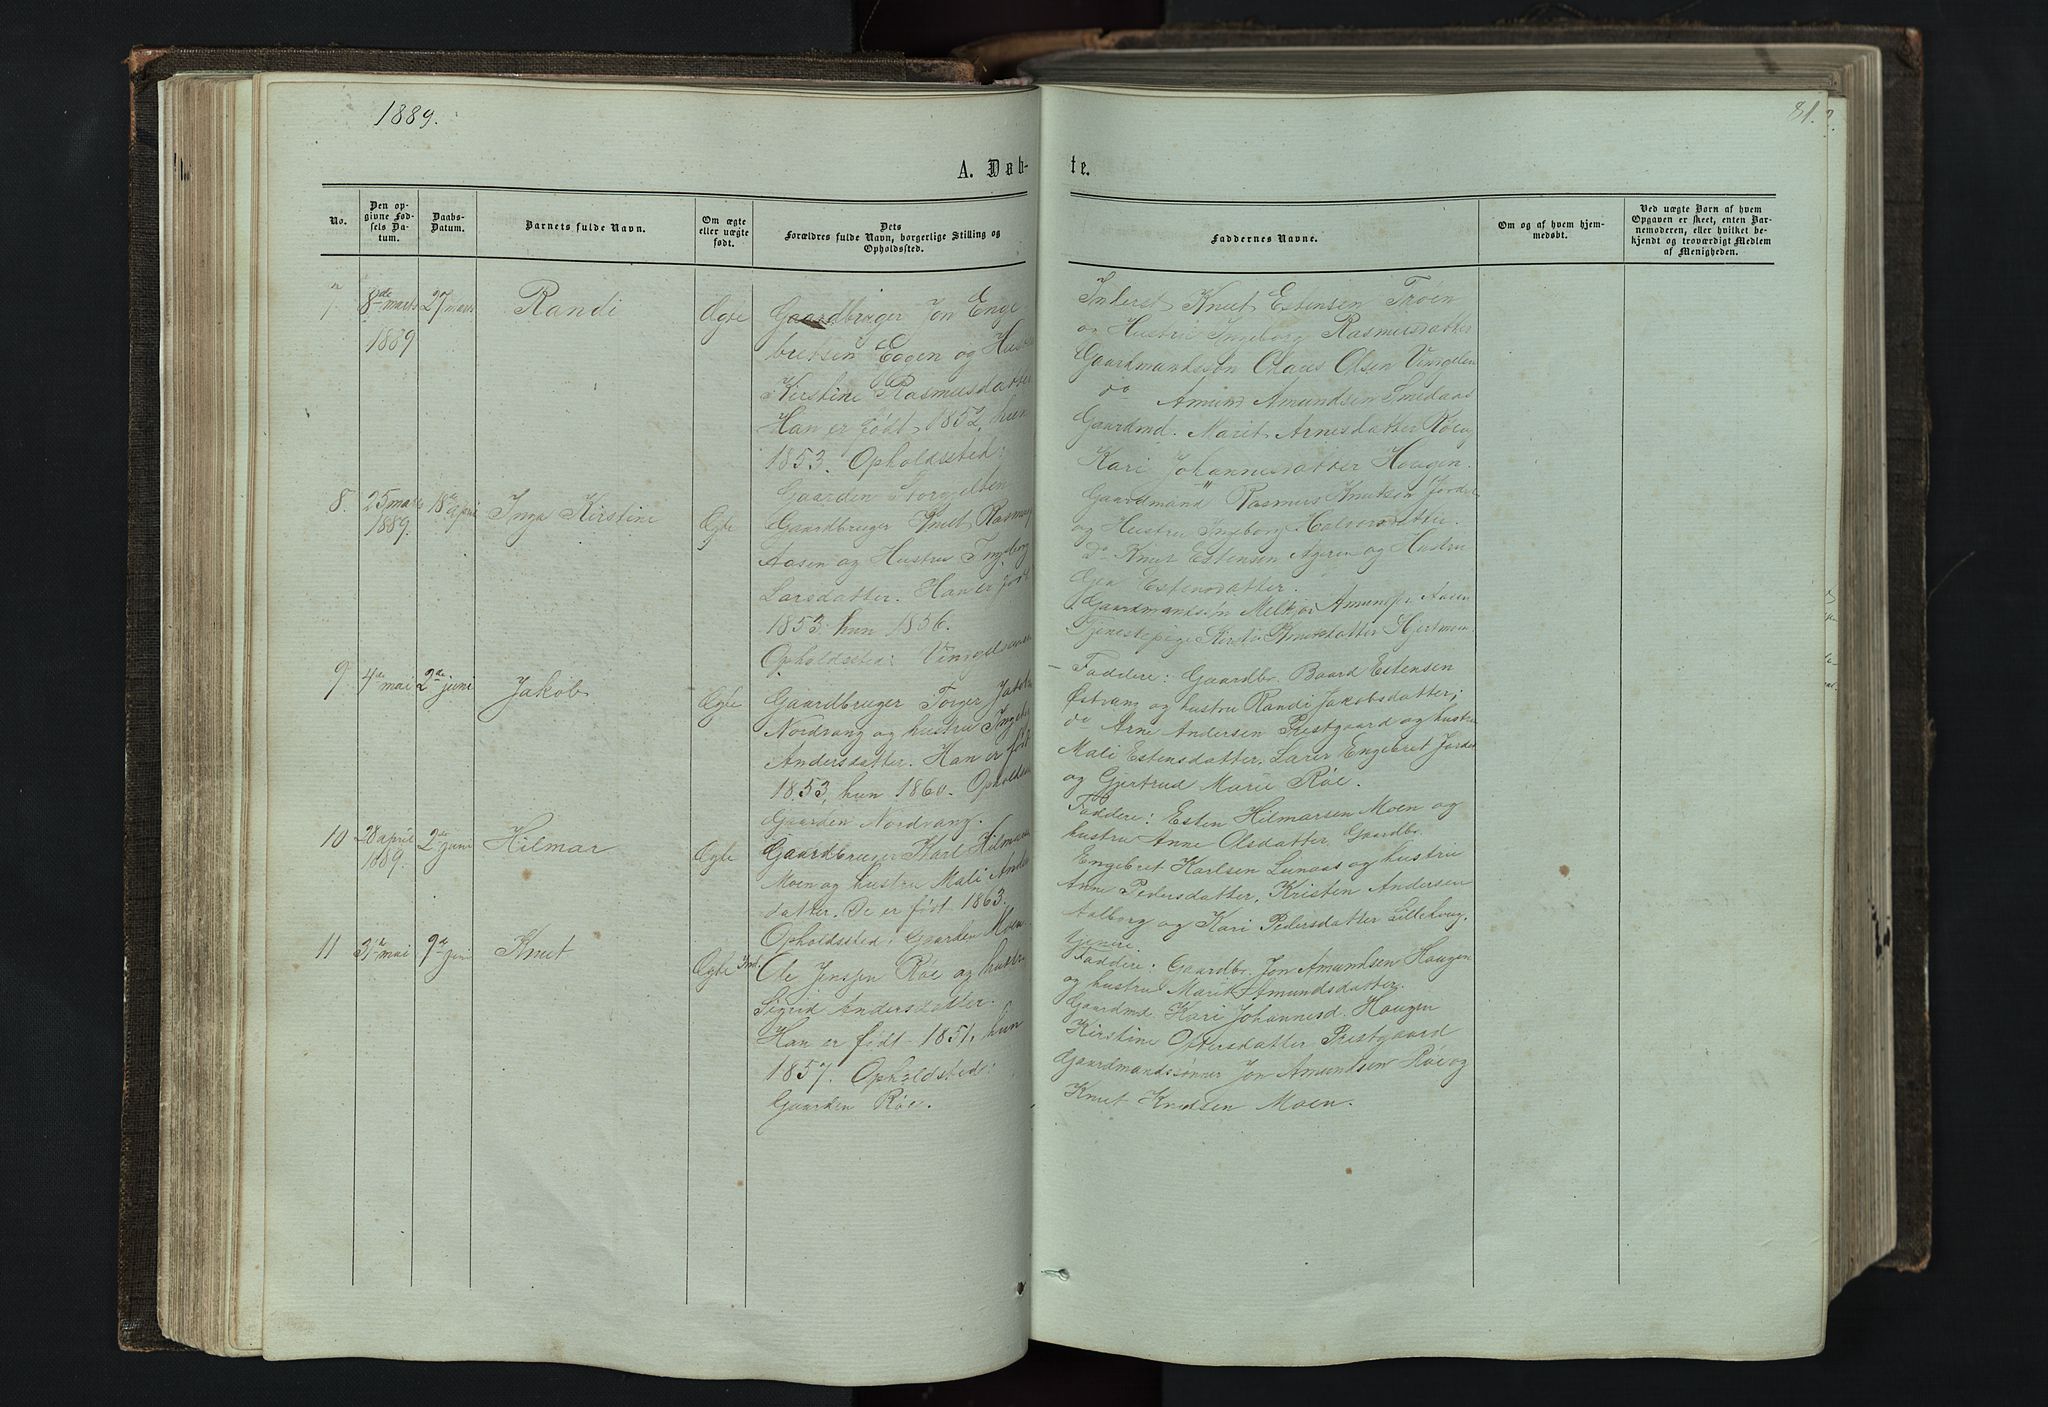 1889.
81.
A. Døb-
te.
No.
Den op-
givne Fød-
sels Da-
tum.
Daabs-
Datum.
Barnets fulde Navn.
Om ægte
eller uægte
født.
Dets
Forældres fulde Navn, borgerlige Stilling og
Opholdssted.
Faddernes Navne.
Om og af hvem hjem-
medøbt.
Ved uægte Børn af hvem
Opgaven er skeet, enten Bar-
nemoderen, eller hvilket be-
kjendt og troværdigt Medlem
af Menigheden.
7
8de marts
1889
27 marts
Randi
Ægte
Gaardbruger Jon Enge-
bretsen Eggen og Hustru
Kirstine Rasmusdatter
Han er født 1852, hun
1853. Opholdssted:
Gaarden
Inderst Knut Estensen Trøen
og Hustru Ingeborg Rasmusdatter
Gaardmandssøn Olaus Olsen Vingelen
do Amund Amundsen Smedaas
Gaardmd. Marit Arnesdatter Røe og
Kari Johannesdatter Hougen.
8.
25 marts
1889.
18de april
Inga Kirstine
Ægte
Gaardbruger Knut Rasmus
Aasen og Hustru Ingeborg
Larsdatter. Han er født
1853 hun 1856.
Opholdssted: Vingelsaasen
Gaardmand Rasmus Knutsen Jordet
og Hustru Ingeborg Halvorsdatter.
Do Knut Estensen og Hustru
Estensdatter.
Gaardmandssøn Melkior Aasen
Tjenestepige Knutsdatter
9
4de mai
2de juni
Jakob
Ægte
Gaardbruger Torger Jakobs
Nordvang og hustru Ingebor
Andersdatter. Han er født
1853, hun 1860. Opholdssted
Gaarden Nordvang.
– Faddere: Gaardbr. Baard Estensen
Østvang og hustru Randi Jakobsdatter;
do Arne Andersen Prestgaard og hustru
Mali Estensdatter, Lærer Engebret Jordet
og Gjertrud Marie Røe.
10
28 april
1889.
2de juni
Hilmar
Ægte
Gaardbruger Karl Hilmarsen
Moen og hustru Mali Anders
datter. De er født 1863.
Opholdssted: Gaarden Moen.
Faddere: Esten Hilmarsen Moen og
hustru Anne Olsdatter, Gaardbr.
Engebret Karlsen Lunaas og hustru
Anne Pedersdatter, Kristen Andersen
Aalborg og Kari Pedersdatter Lillehoug,
tjenere.
11
3die mai
9de juni
Knut
Ægte
Ind. Ole Jensen Røe og hustru
Sigrid Andersdatter.
Han er født 1851, hun
1857. Opholdssted:
Gaarden Røe.
Faddere: Gaardbr. Jon Amundsen Hougen
og hustru Marit Amundsdatter.
Gaardmd. Kari Johannesd. Hougen
Kirstine Ottersdatter Prestgaard
Gaardmandssønner Jon Amundsen Røe og
Knut Knudsen Moen.